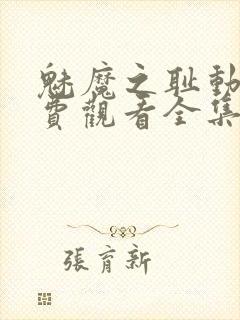 魅魔之耻動
費觀看全集
張育新